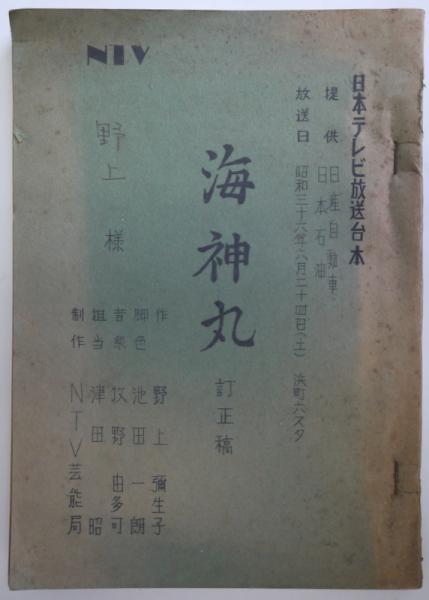 NTV
日本テレビ放送台本
提供 日産自動車・
日本石油
放送日 昭和三十六年六月二十四日(土) 浜町六スタ
海神丸 訂正稿
作 野上彌生子
脚色 池田一朗
音楽 牧野由多可
担当 津田昭
制作 NTV芸能局
野上様